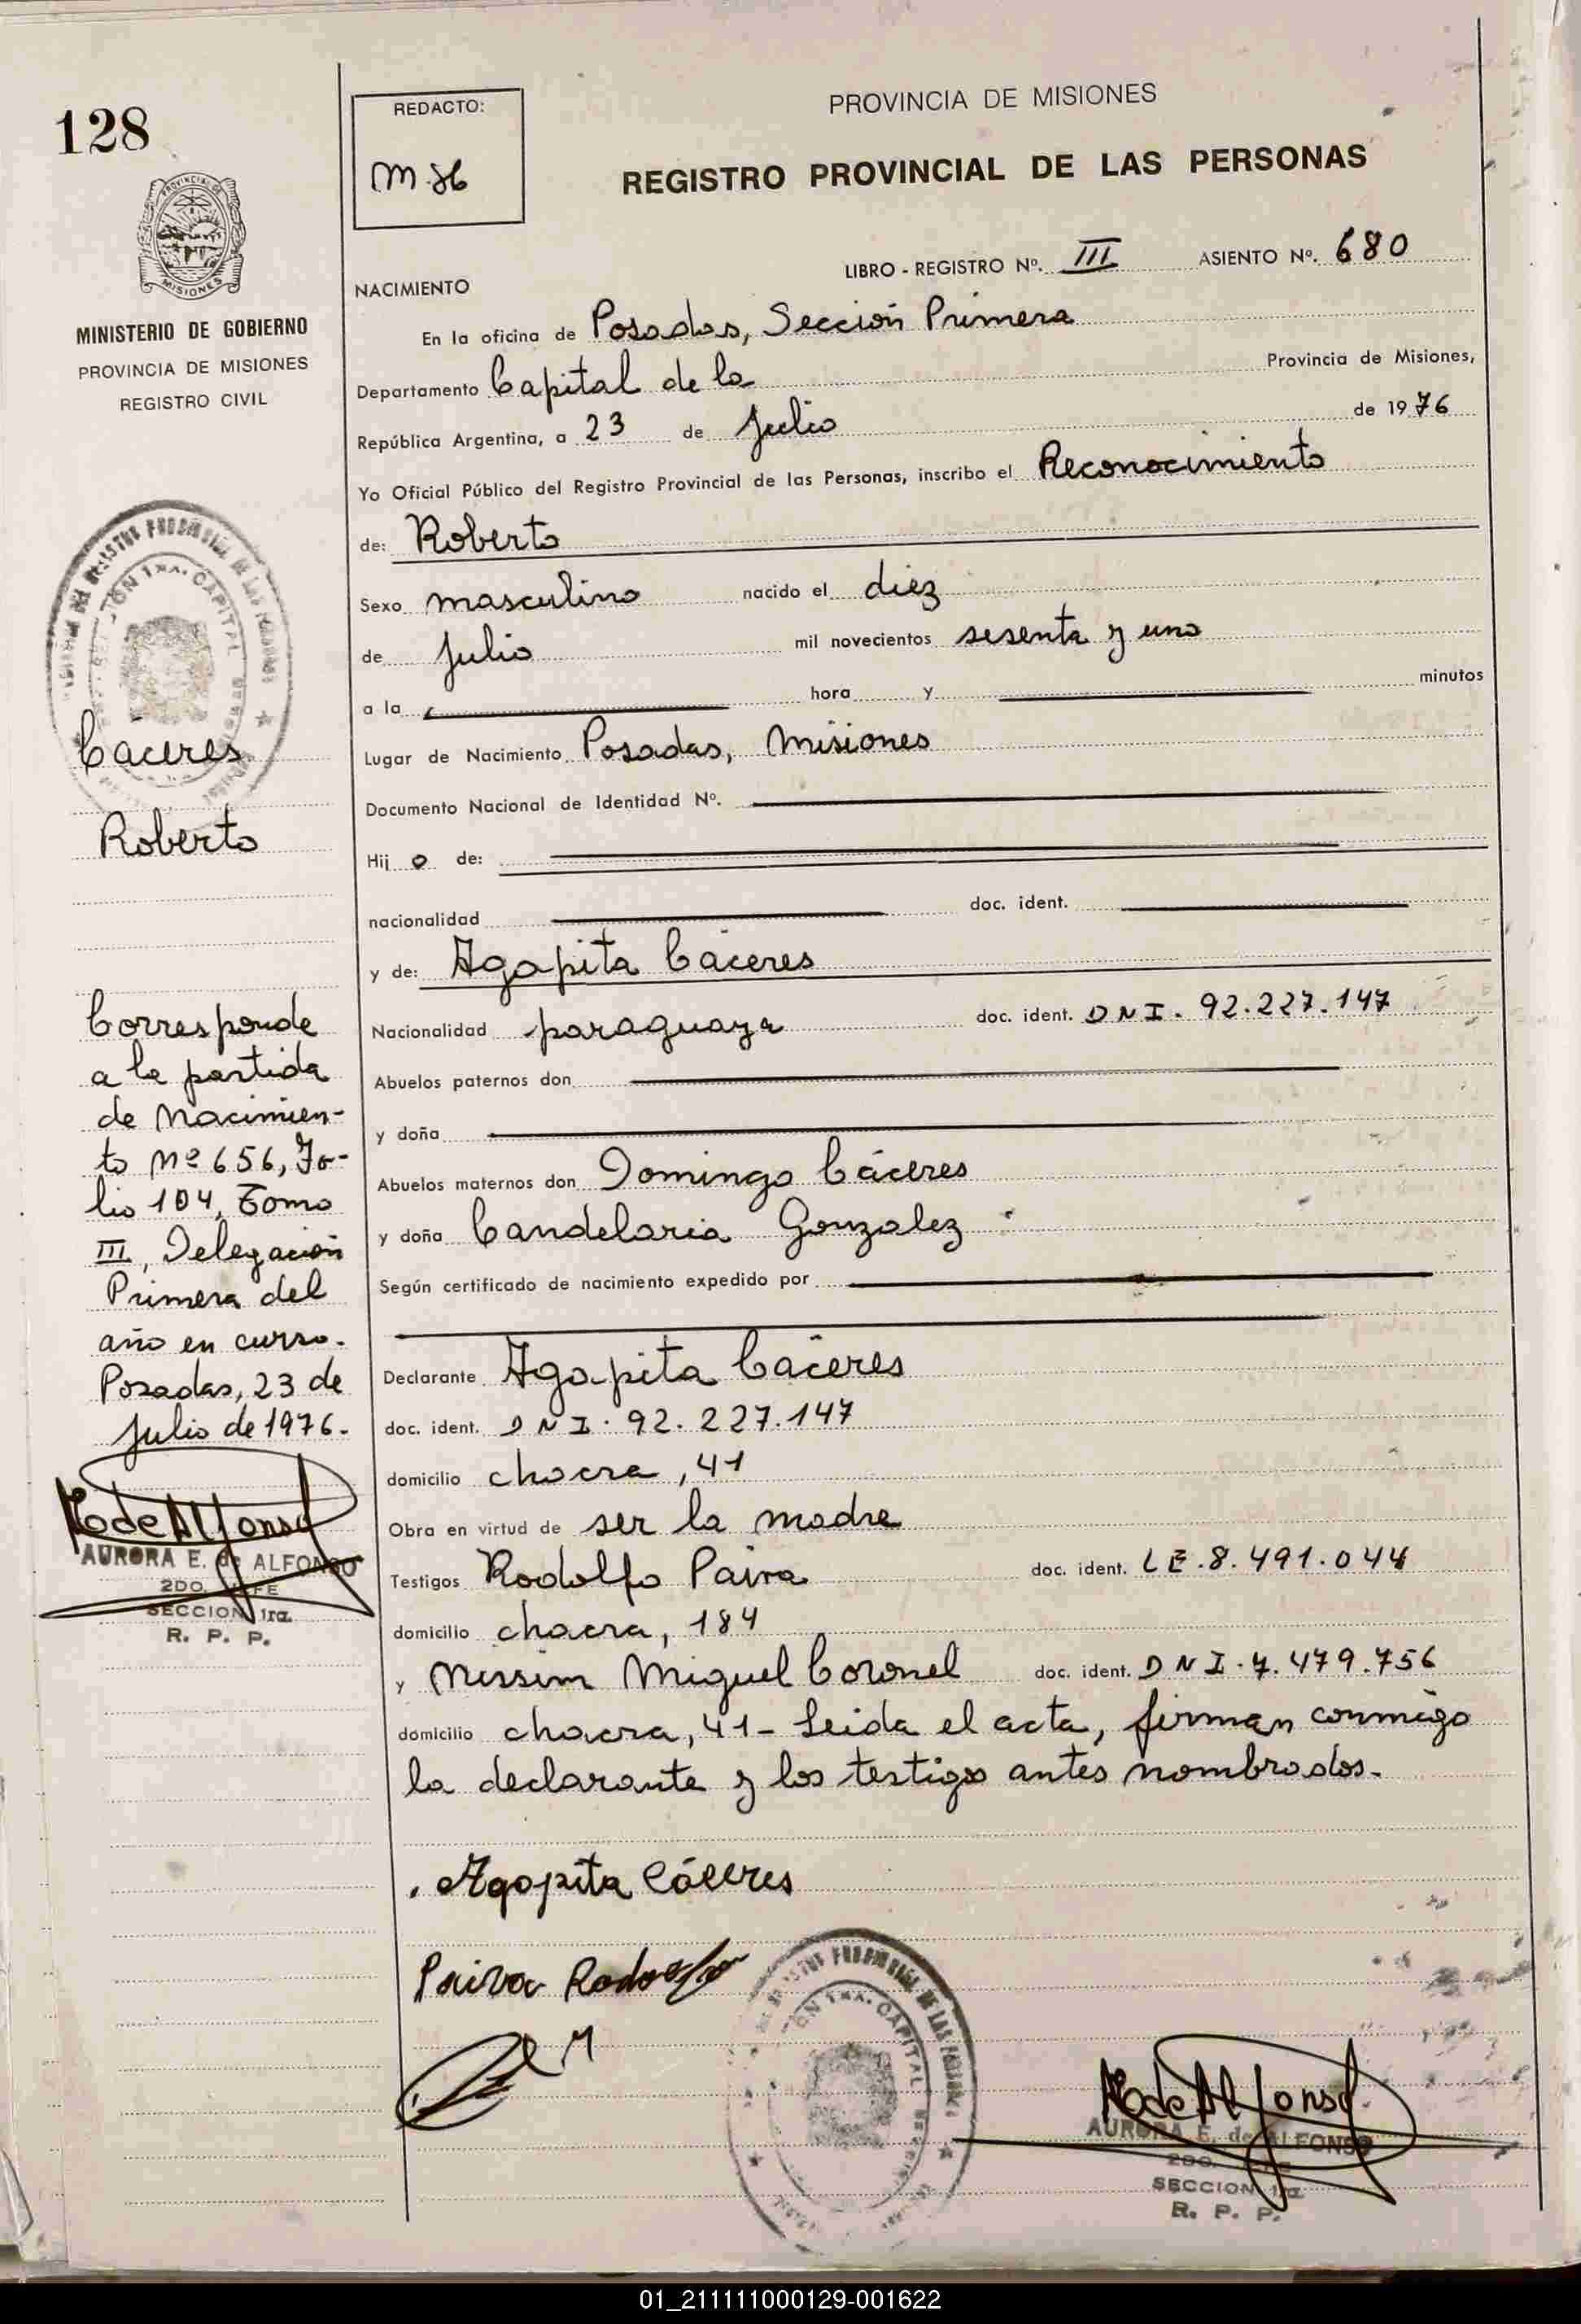 128
REDACTO:
PROVINCIA DE MISIONES
REGISTRO PROVINCIAL DE LAS PERSONAS
LIBRO - REGISTRO Nº. III ASIENTO Nº. 680
NACIMIENTO
PROVINCIA DE
MISIONES
MINISTERIO DE GOBIERNO
PROVINCIA DE MISIONES
REGISTRO CIVIL
En la oficina de Posadas, Sección Primera
Departamento Capital de la Provincia de Misiones,
República Argentina, a 23 de Julio de 1976
Yo Oficial Público del Registro Provincial de las Personas, inscribo el Reconocimiento
de: Roberto
Sexo masculino nacido el diez
de Julio mil novecientos sesenta y uno
a la hora y minutos
Lugar de Nacimiento Posadas, Misiones
Documento Nacional de Identidad Nº.
Hij o de:
nacionalidad doc. ident.
y de: Agapita Cáceres
Nacionalidad paraguaya doc. ident. DNI. 92.227.147
Abuelos paternos don
y doña
Abuelos maternos don Domingo Cáceres
y doña Candelaria Gonzalez
Según certificado de nacimiento expedido por
Declarante Agapita Cáceres
doc. ident. DNI. 92.227.147
domicilio chacra, 41
Obra en virtud de ser la madre
Testigos Rodolfo Paiva doc. ident. LE.8.491.044
domicilio chacra, 184
y Nissim Miguel Coronel doc. ident. DNI.7.479.756
domicilio chacra, 41- Leida el acta, firman conmigo
la declarante y los testigos antes nombrados.
Agapita Cáceres
Paiva Rodolfo
Cáceres
Roberto
Corresponde
a la partida
de Nacimien-
to Nº 656, Fo-
lio 104, Tomo
III, Delegación
Primera del
año en curso.
Posadas, 23 de
Julio de 1976.
AURORA E. de ALFONSO
2DO. JEFE
SECCION 1ra.
R. P. P.
AURORA E. de ALFONSO
2DO. JEFE
SECCION 1ra.
R. P. P.
01_211111000129-001622